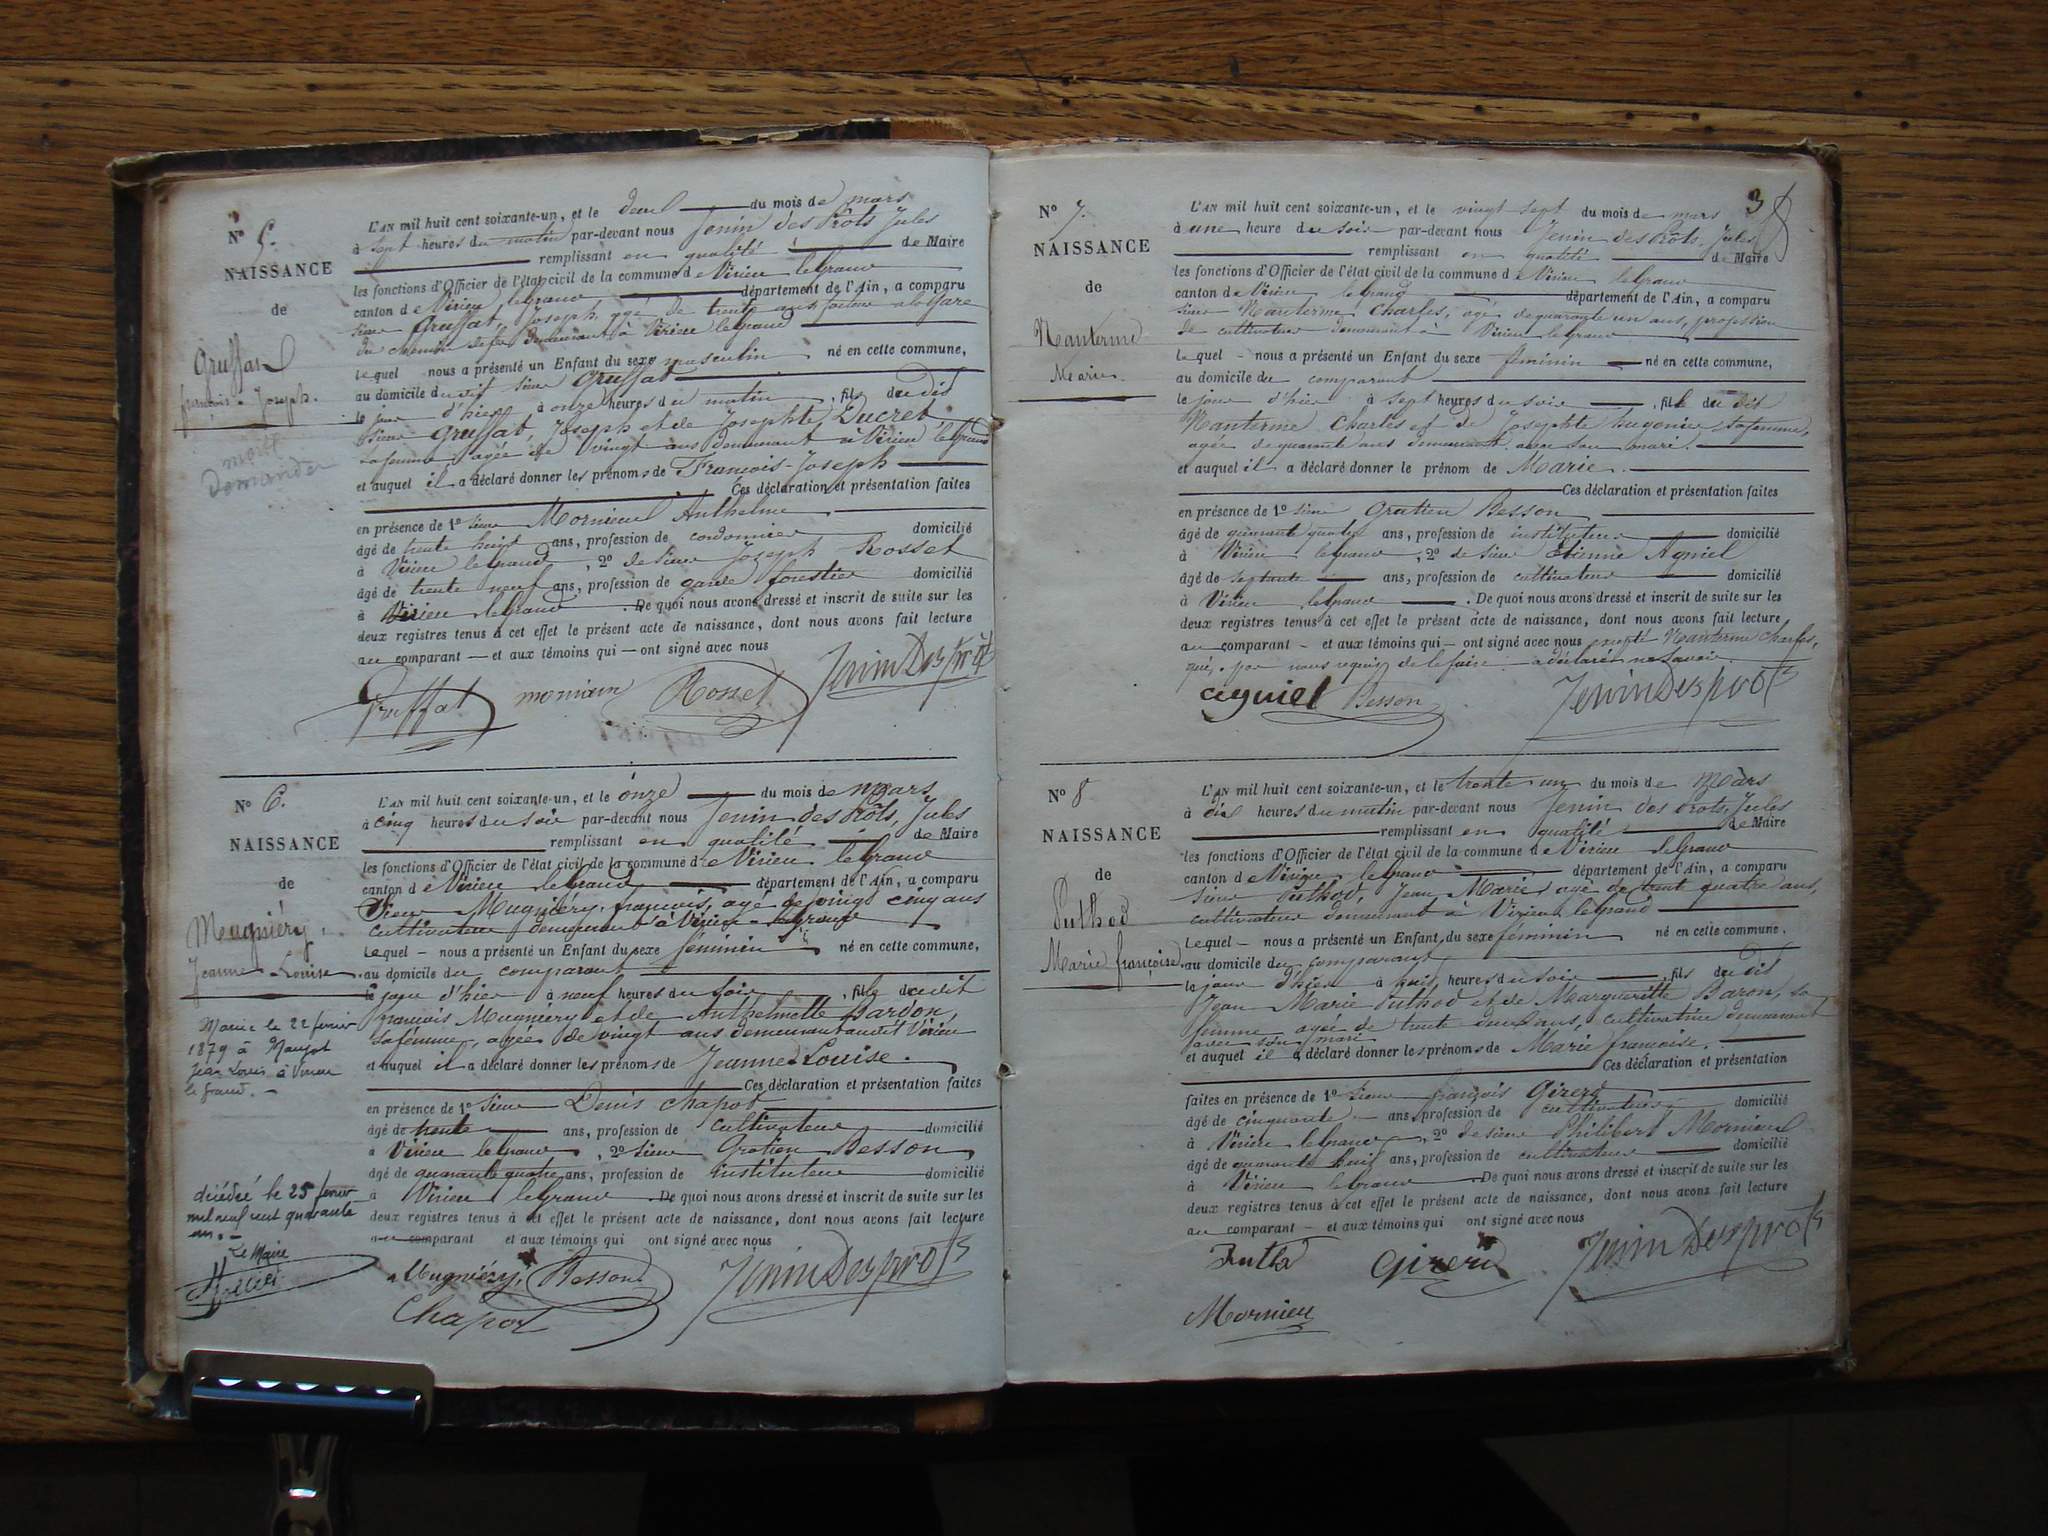 N° 5.
NAISSANCE
de
Gruffat
françois-Joseph.
mort
L'AN mil huit cent soixante-un, et le deux du mois de mars
à sept heures du matin par-devant nous Jenin des Prôts Jules
remplissant en qualité de Maire
les fonctions d'Officier de l'état civil de la commune de Virieu le Grand
canton de Virieu le Grand département de l'Ain, a comparu
sieur Gruffat, Joseph, âgé de trente ans facteur à la Gare
du chemin de fer demeurant à Virieu le Grand
lequel nous a présenté un Enfant du sexe masculin né en cette commune,
au domicile dudit sieur Gruffat
le jour d'hier à onze heures du matin, fils du dit
sieur Gruffat, Joseph et de Josephte Lucret
sa femme agée de vingt ans demeurant à Virieu le Grand
et auquel il a déclaré donner les prénoms de François-Joseph
Ces déclaration et présentation faites
en présence de 1° sieur Mornieux Anthelme
âgé de trente huit ans, profession de cordonnier domicilié
à Virieu le Grand, 2° de sieur Joseph Rosset
âgé de trente neuf ans, profession de garde forestier domicilié
à Virieu le Grand. De quoi nous avons dressé et inscrit de suite sur les
deux registres tenus à cet effet le présent acte de naissance, dont nous avons fait lecture
au comparant — et aux témoins qui — ont signé avec nous
Gruffat Rosset JeninDesprôts
N° 6.
NAISSANCE
de
Mugniéry,
Jeanne-Louise.
Mariée le 22 février
1879 à
Jean Louis à Virieu
le Grand. -
décédée le 25 février
mil neuf cent quarante
un. -
Le Maire
L'AN mil huit cent soixante-un, et le onze du mois de mars
à cinq heures du soir par-devant nous Jenin des Prôts, Jules
remplissant en qualité de Maire
les fonctions d'Officier de l'état civil de la commune de Virieu le Grand
canton de Virieu le Grand département de l'Ain, a comparu
Sieur Mugniéry, françois, agé de vingt cinq ans
cultivateur demeurant à Virieu le Grand
lequel — nous a présenté un Enfant du sexe féminin né en cette commune,
au domicile du comparant
le jour d'hier à neuf heures du soir, fille du dit
françois Mugniéry et de Anthelmette Bardon,
sa femme, agée de vingt ans demeurant audit Virieu
et auquel il a déclaré donner les prénoms de Jeanne-Louise.
Ces déclaration et présentation faites
en présence de 1° Sieur Denis Chapot
âgé de trente ans, profession de cultivateur domicilié
à Virieu le Grand, 2° sieur Gratien Besson
âgé de quarante quatre ans, profession de instituteur domicilié
à Virieu le Grand. De quoi nous avons dressé et inscrit de suite sur les
deux registres tenus à cet effet le présent acte de naissance, dont nous avons fait lecture
au comparant et aux témoins qui ont signé avec nous
Mugniéry, Besson JeninDesprots
Chapot
3
N° 7.
NAISSANCE
de
Nanterme
Marie.
L'AN mil huit cent soixante-un, et le vingt sept du mois de mars
à une heure du soir par-devant nous Jenin des Prôts, Jules
remplissant en qualité de Maire
les fonctions d'Officier de l'état civil de la commune de Virieu le Grand
canton de Virieu le Grand département de l'Ain, a comparu
sieur Nanterme Charles, agé de quarante un ans, profession
de cultivateur demeurant à Virieu le Grand
lequel — nous a présenté un Enfant du sexe féminin né en cette commune,
au domicile du comparant
le jour d'hier à sept heures du soir, fille du dit
Nanterme Charles et de Josephte hugonier, sa femme,
agée de quarante ans demeurant avec son mari.
et auquel il a déclaré donner le prénom de Marie.
Ces déclaration et présentation faites
en présence de 1° sieur Gratien Besson
âgé de quarante quatre ans, profession de instituteur domicilié
à Virieu le Grand, 2° de sieur Etienne Agniel
âgé de septante ans, profession de cultivateur domicilié
à Virieu le Grand. De quoi nous avons dressé et inscrit de suite sur les
deux registres tenus à cet effet le présent acte de naissance, dont nous avons fait lecture
au comparant — et aux témoins qui — ont signé avec nous excepté Nanterme Charles,
qui, par nous requis de le faire a déclaré ne savoir.
agniel Besson JeninDesprots
N° 8
NAISSANCE
de
Puthod
Marie françoise.
L'AN mil huit cent soixante-un, et le trente un du mois de Mars
à dix heures du matin par-devant nous Jenin des Prots, Jules
remplissant en qualité de Maire
les fonctions d'Officier de l'état civil de la commune de Virieu le Grand
canton de Virieu le Grand département de l'Ain, a comparu
sieur Puthod, Jean Marie, agé de trente quatre ans,
cultivateur demeurant à Virieu le Grand
lequel — nous a présenté un Enfant du sexe féminin né en cette commune.
au domicile du comparant
le jour d'hier à huit heures du soir fils du dit
Jean Marie Puthod et de Marguerite Baron, sa
femme agée de trente deux ans, cultivatrice demeurant
avec son mari
et auquel il a déclaré donner les prénoms de Marie françoise.
Ces déclaration et présentation
faites en présence de 1° sieur françois Girerd
âgé de cinquante — ans, profession de cultivateur domicilié
à Virieu le Grand, 2° de sieur Philibert Mornieux
âgé de quarante huit ans, profession de cultivateur domicilié
à Virieu le Grand. De quoi nous avons dressé et inscrit de suite sur les
deux registres tenus à cet effet le présent acte de naissance, dont nous avons fait lecture
au comparant — et aux témoins qui ont signé avec nous
Girerd JeninDesprots
Mornieu